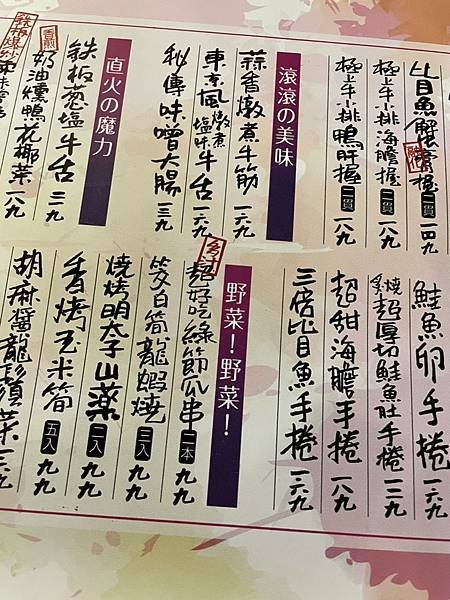 比目魚蟹膏握 二貫 一四九
極上牛小排海膽握 二貫 一八九
極上牛小排鴨肝握 二貫 一八九
滾滾の美味
蒜香燉煮牛筋 一六九
東京風燉煮塩味牛舌 一六九
秘傳味噌大腸 一三九
直火の魔力
鉄板蔥塩牛舌 二一九
香煎
奶油燻鴨花椰菜 一八九
鉄板爆炒
鮭魚卵手捲 一六九
炙燒超厚切鮭魚肚手捲 一二九
超甜海膽手捲 一八九
三倍比目魚手捲 一六九
野菜!野菜!
多汁
超好吃綠節瓜串 二本 九九
筊白筍龍蝦燒 三入 九九
燒烤明太子山薬 二入 九九
香烤玉米筍 五入 九九
胡麻醬龍鬚菜 一二九